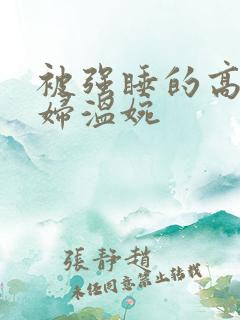 被强睡的高
婦溫婉
張靜趙
未经同意禁止转载